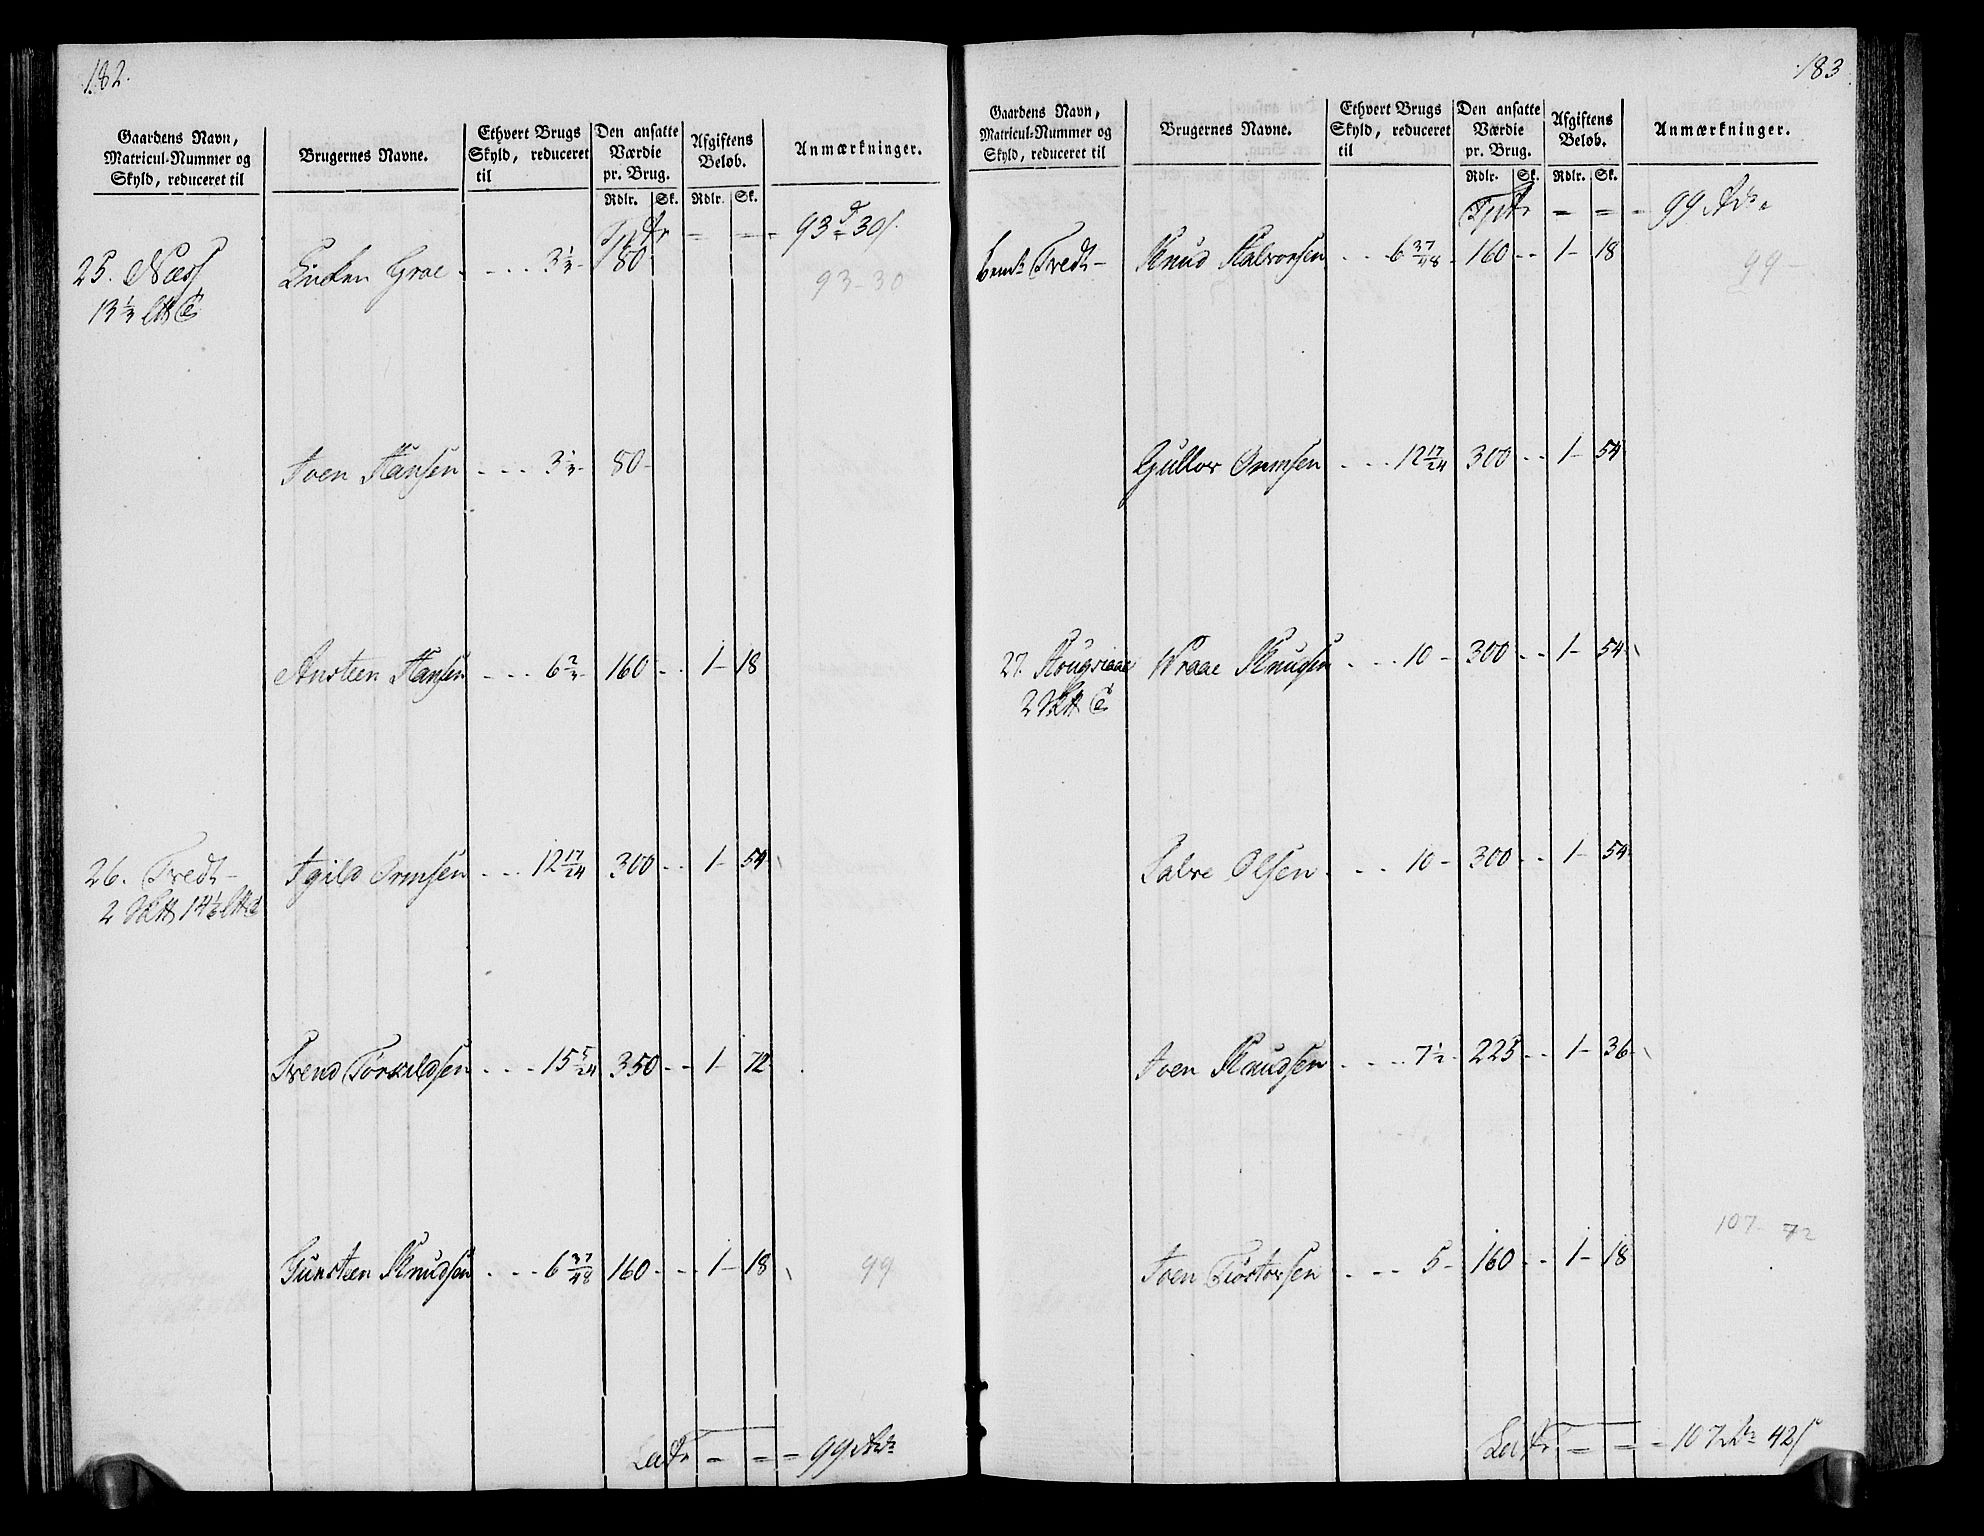 182.
Gaardens Navn,
Matricul-Nummer og
Skyld, reduceret til
Brugernes Navne.
Ethvert Brugs
Skyld, reduceret
til
Den ansatte
Værdie
pr. Brug.
Rdlr. Sk.
Afgiftens
Beløb.
Rdlr. Sk.
Anmærkninger.
= = = 93 30
25. Næss
13 1/3
Grae - - - 3 1/3 - 80
93 - 30
Joen Hansen - - - 3 1/3 - 80 -
Ansteen Hansen - - - 6 2/3 160 - - 1 - 18
26. Tvedt -
2 14 1/6
Egild Ormsen - - - 12 17/24 300 - - 1 - 54
Svend Torkildsen - - - 15 5/24 350 - - 1 - 72
Gunsteen Knudsen - - - 6 37/48 160 - - 1 - 18
99
Lat = = = 99
183
Gaardens Navn,
Matricul-Nummer og
Skyld, reduceret til
Brugernes Navne.
Ethvert Brugs
Skyld, reduceret
til
Den ansatte
Værdie
pr. Brug.
Rdlr. Sk.
Afgiftens
Beløb.
Rdlr. Sk.
Anmærkninger.
= = = 99
Tvedt - Knud Halvorsen - - 6 37/48 - 160 - - 1 - 18
99 -
Gullov Ormsen - - - 12 17/24 300 - - 1 - 54
27. Wraae Knudsen - - - 10 - 300 - - 1 - 54
2
Salve Olsen - - - 10 - 300 - - 1 - 54
Joen Knudsen - - - 7 1/2 - 225 - - 1 - 36
107 - 72
Joen - - - 5 - 160 - - 1 - 18
Lat = = = 107 42